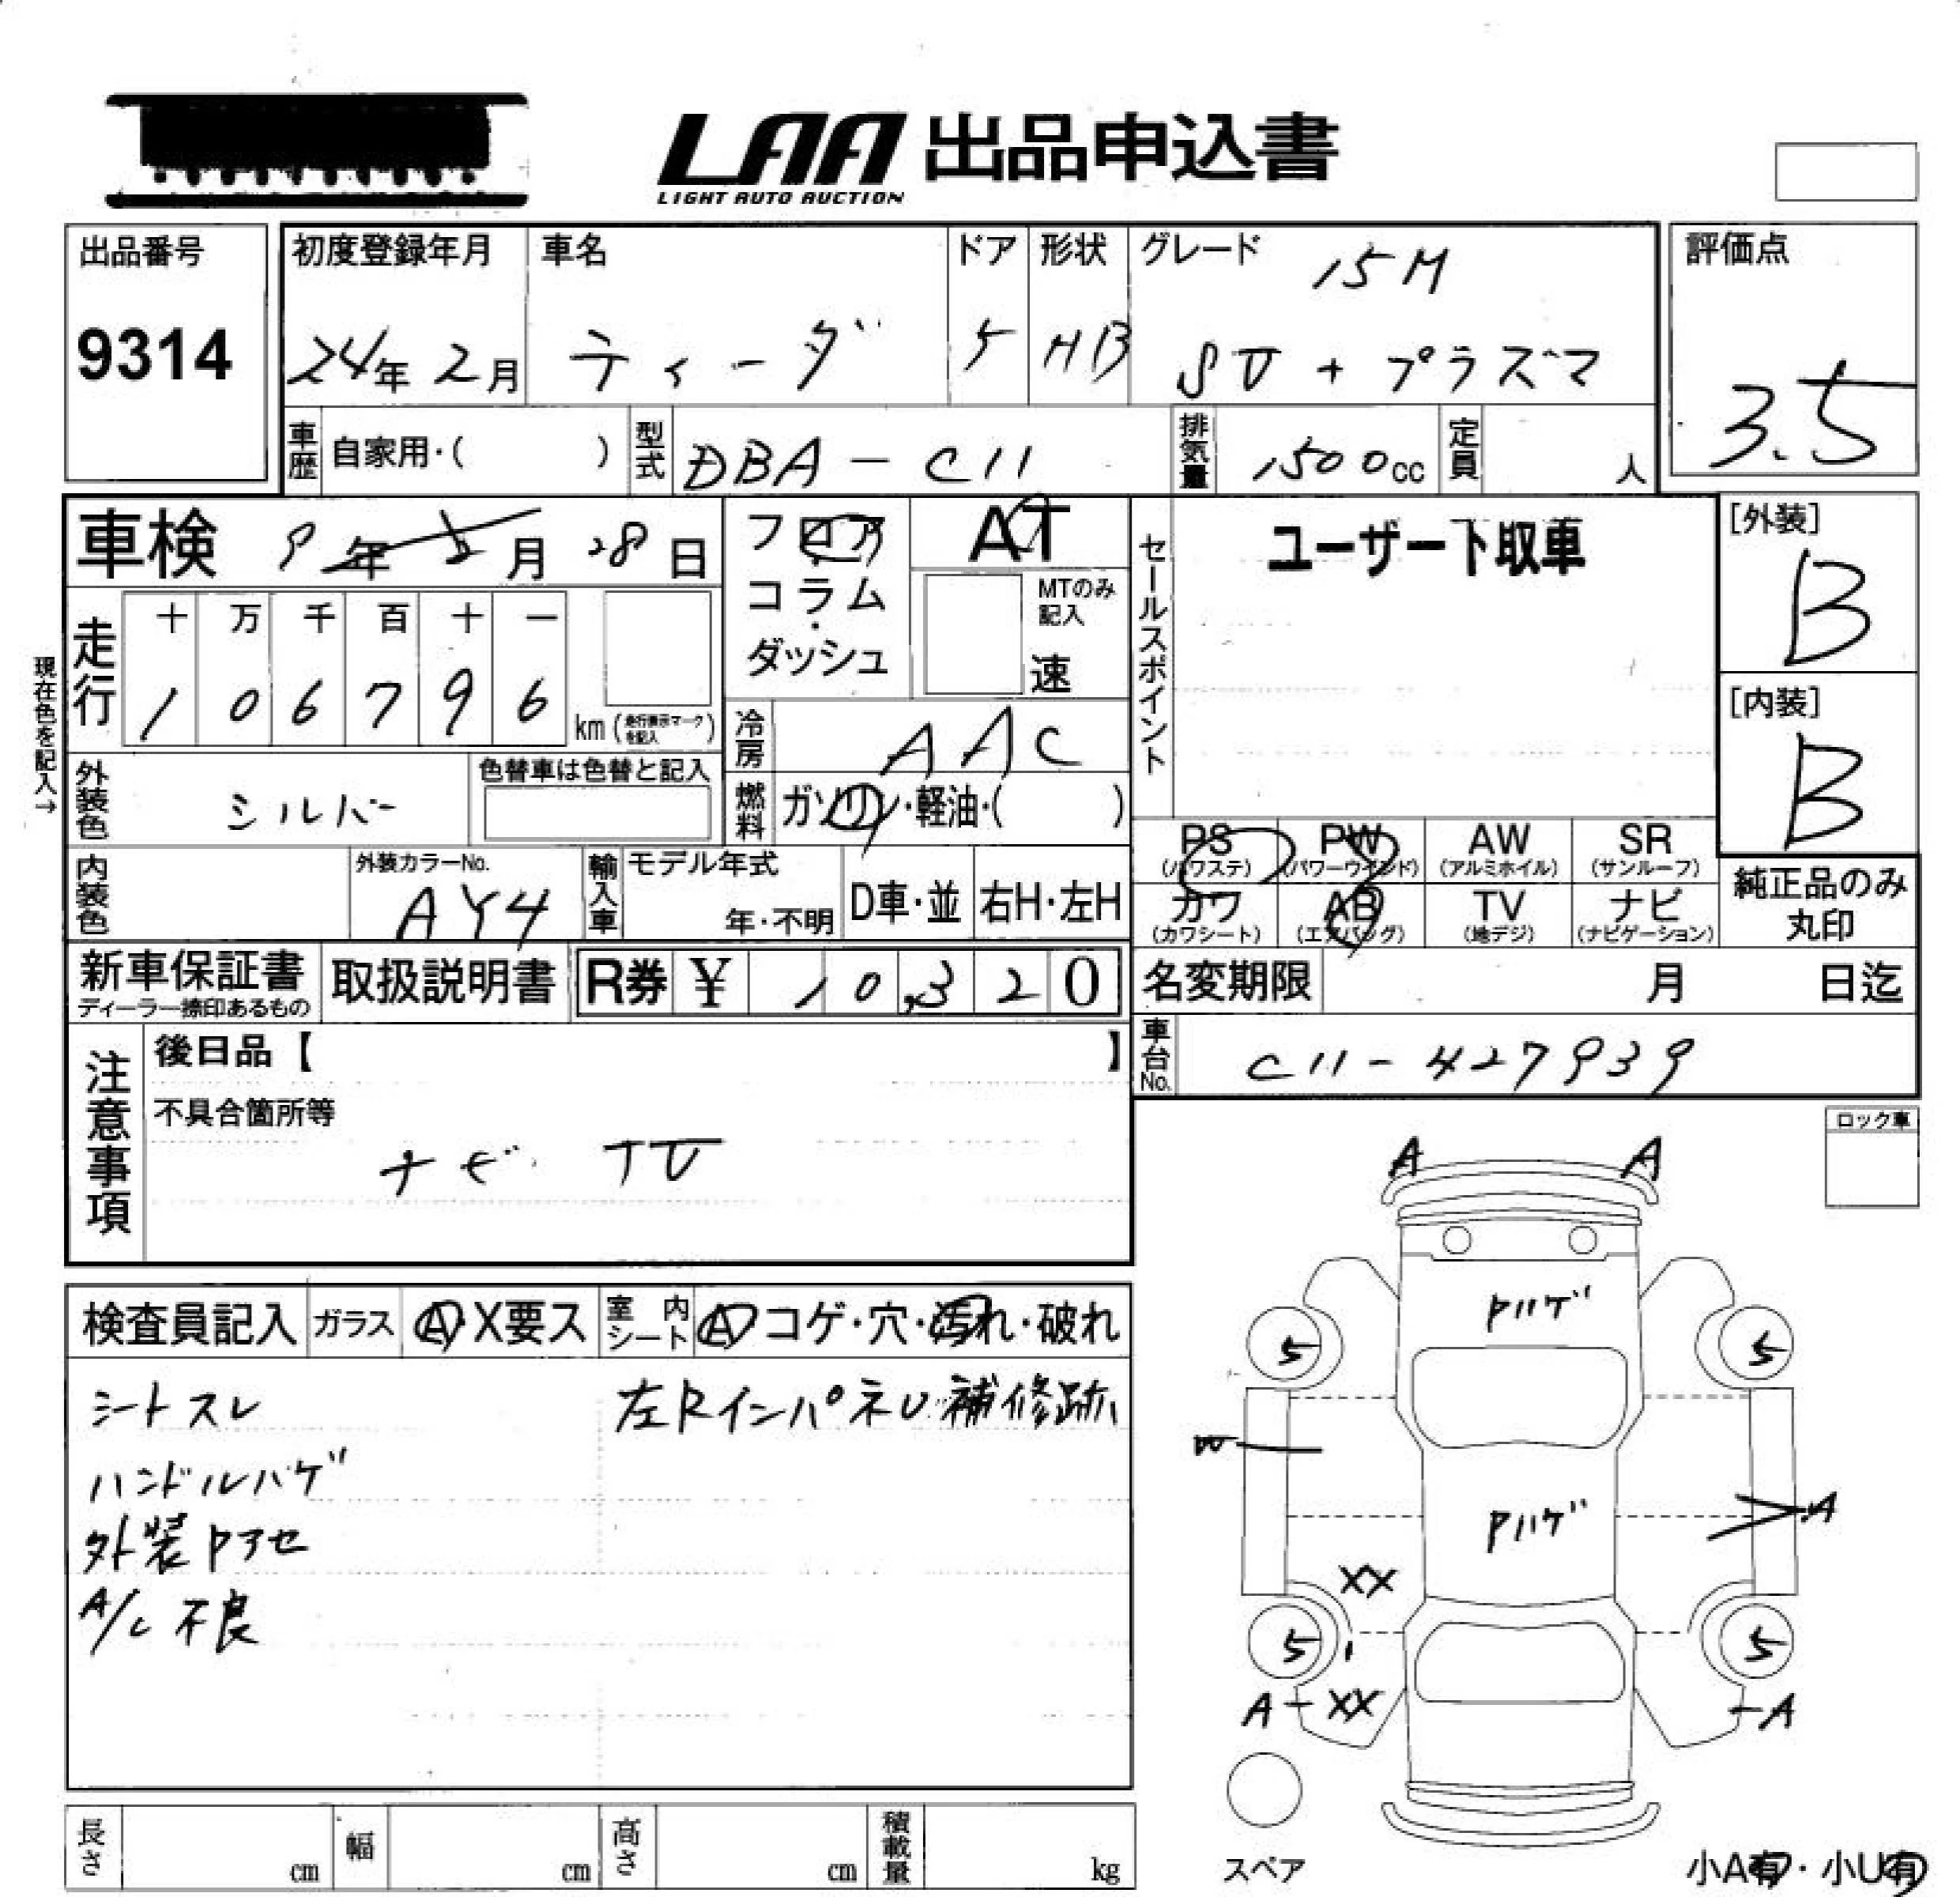 LAA 出品申込書
LIGHT AUTO AUCTION
出品番号
9314
初度登録年月
24年 2月
車名
ティーダ
ドア
5
形状
HB
グレード
15M
SV + プラズマ
評価点
3.5
車歴
自家用・( )
型式
DBA - C11
排気量
1500cc
定員
人
車検 9年 2月 28日
フロア
コラム
・
ダッシュ
AT
MTのみ
記入
速
セールスポイント
ユーザー下取車
[外装]
B
[内装]
B
現在色を記入→
走行
十 万 千 百 十 一
1 0 6 7 9 6
km (走行表示マークを記入)
冷房
AAC
外装色
シルバー
色替車は色替と記入
燃料
ガソリン・軽油・( )
PS
(パワステ)
PW
(パワーウインド)
AW
(アルミホイル)
SR
(サンルーフ)
カワ
(カワシート)
AB
(エアバッグ)
TV
(地デジ)
ナビ
(ナビゲーション)
純正品のみ
丸印
内装色
外装カラーNo.
AY4
輸入車
モデル年式
年・不明
D車・並
右H・左H
新車保証書
ディーラー捺印あるもの
取扱説明書
R券 ¥ 10,320
名変期限
月 日迄
車台No.
C11-427939
注意事項
後日品【 】
不具合箇所等
ナビ TV
ロック車
検査員記入
ガラス
A X要ス
室内シート
A コゲ・穴・汚れ・破れ
シートスレ
左Rインパネル補修跡
ハンドルハゲ
外装Pアセ
A/C 不良
A
A
Pハゲ
5
5
A
Pハゲ
XX
5
5
A-XX
-A
スペア
小A有・小U有
長さ
cm
幅
cm
高さ
cm
積載量
kg